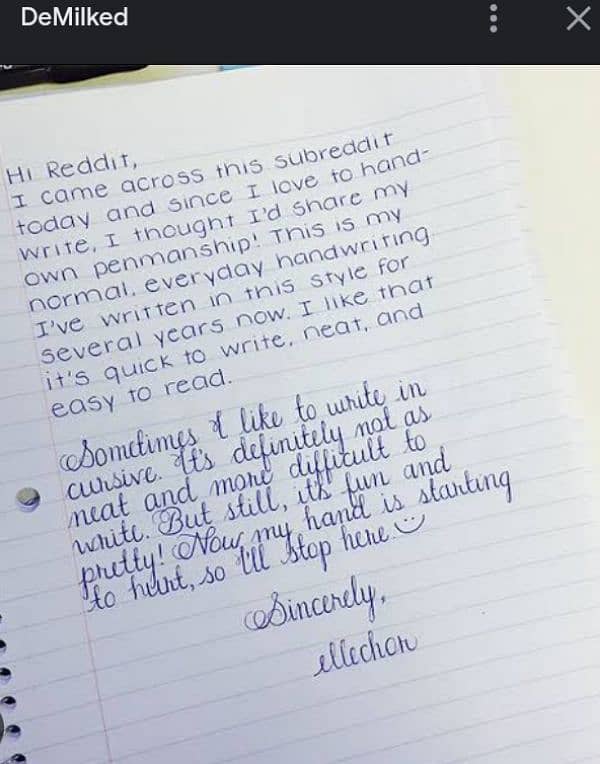 DeMilked
Hi Reddit,
I came across this subreddit
today and since I love to hand-
write, I thought I'd share my
own penmanship! This is my
normal, everyday handwriting
I've written in this style for
several years now. I like that
it's quick to write, neat, and
easy to read.
Sometimes I like to write in
cursive. It's definitely not as
neat and more difficult to
write. But still, it's fun and
pretty! Now my hand is starting
to hurt, so I'll stop here. ☺
Sincerely,
ellechor